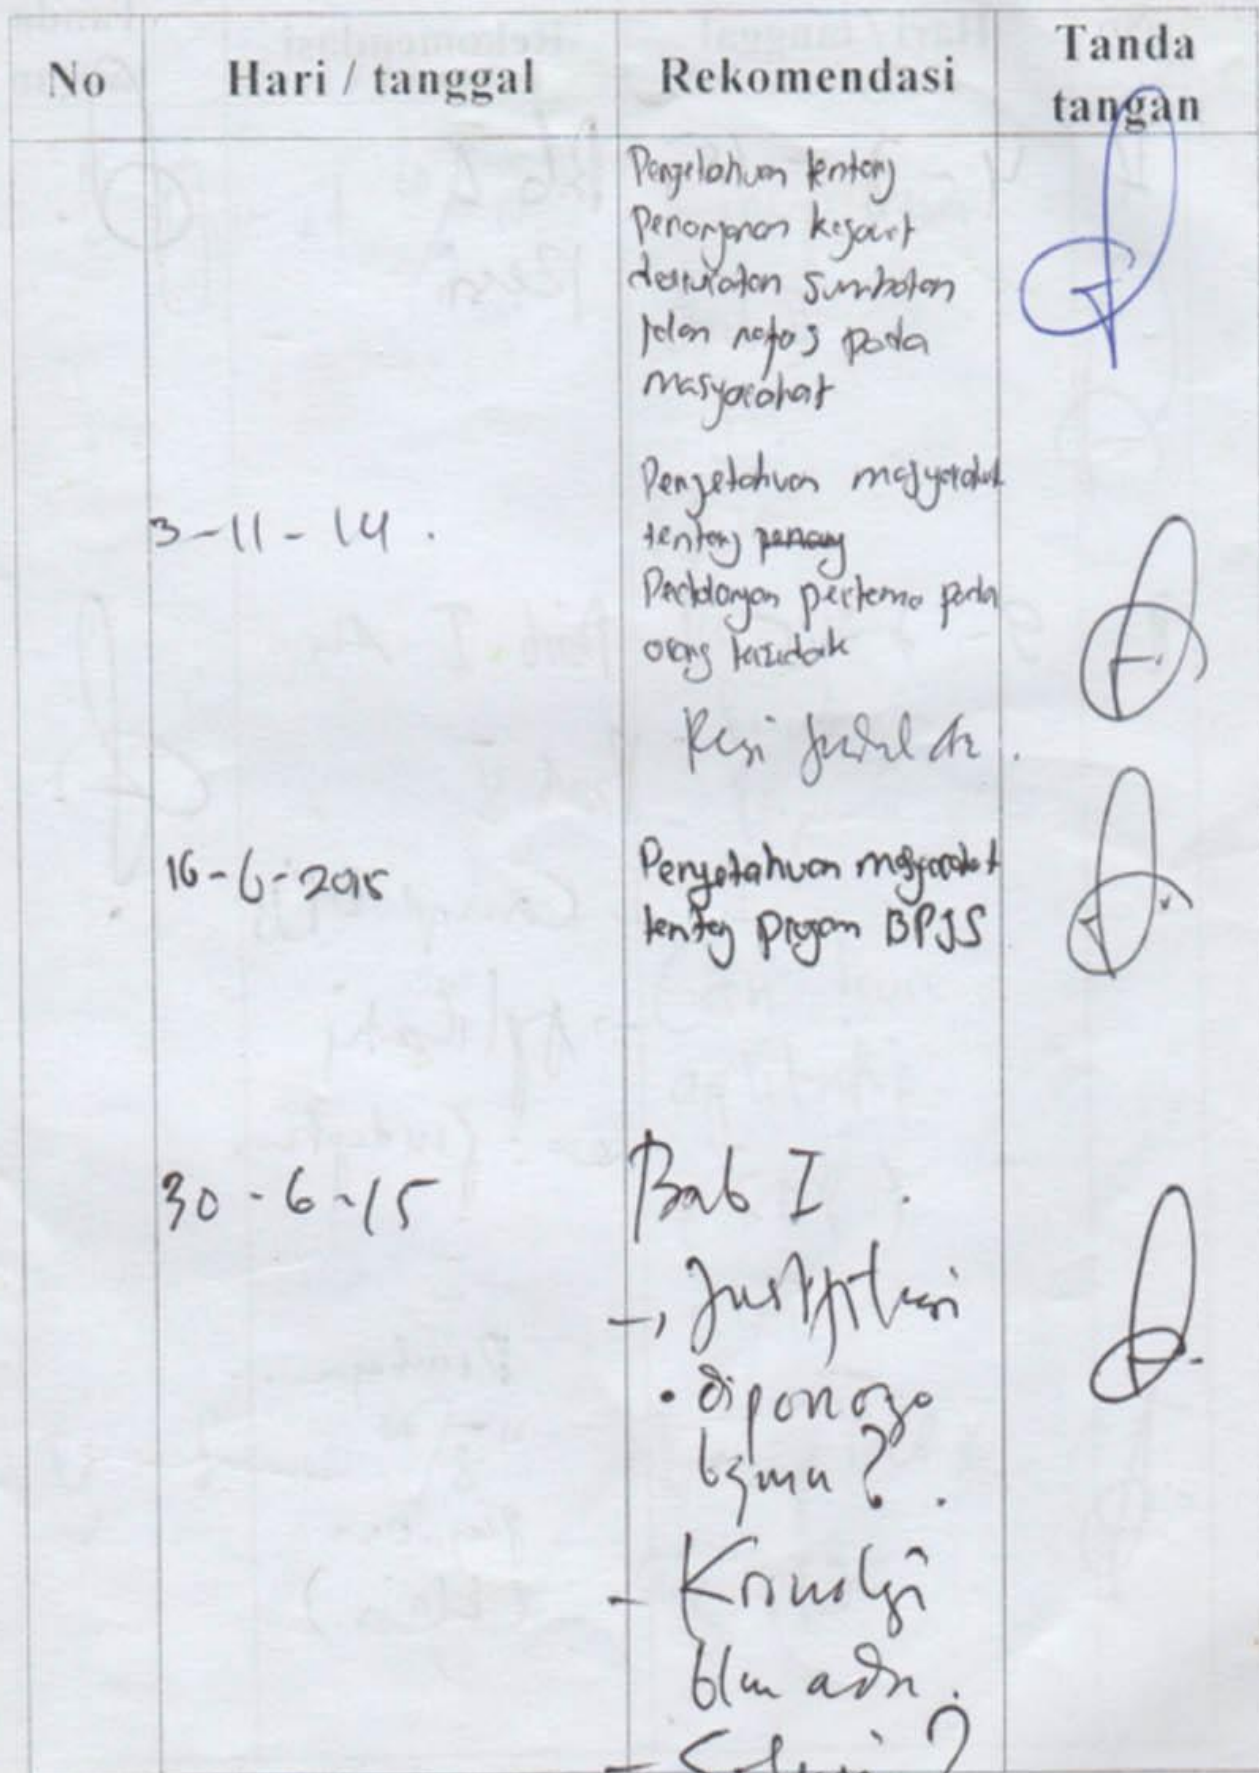 No Hari / tanggal Rekomendasi Tanda tangan
Pengetahuan tentang
Penanganan kegawat
daruratan sumbatan
jalan nafas pada
masyarakat
3-11-14. Pengetahuan masyarakat
tentang penang
Pertolongan pertama pada
orang tersedak
judul
16-6-2015 Pengetahuan masyarakat
tentang program BPJS
30-6-15 Bab I
-, Justifikasi
• diponorogo
bgmn?
- Kronologi
blm ada.
- Solusi?